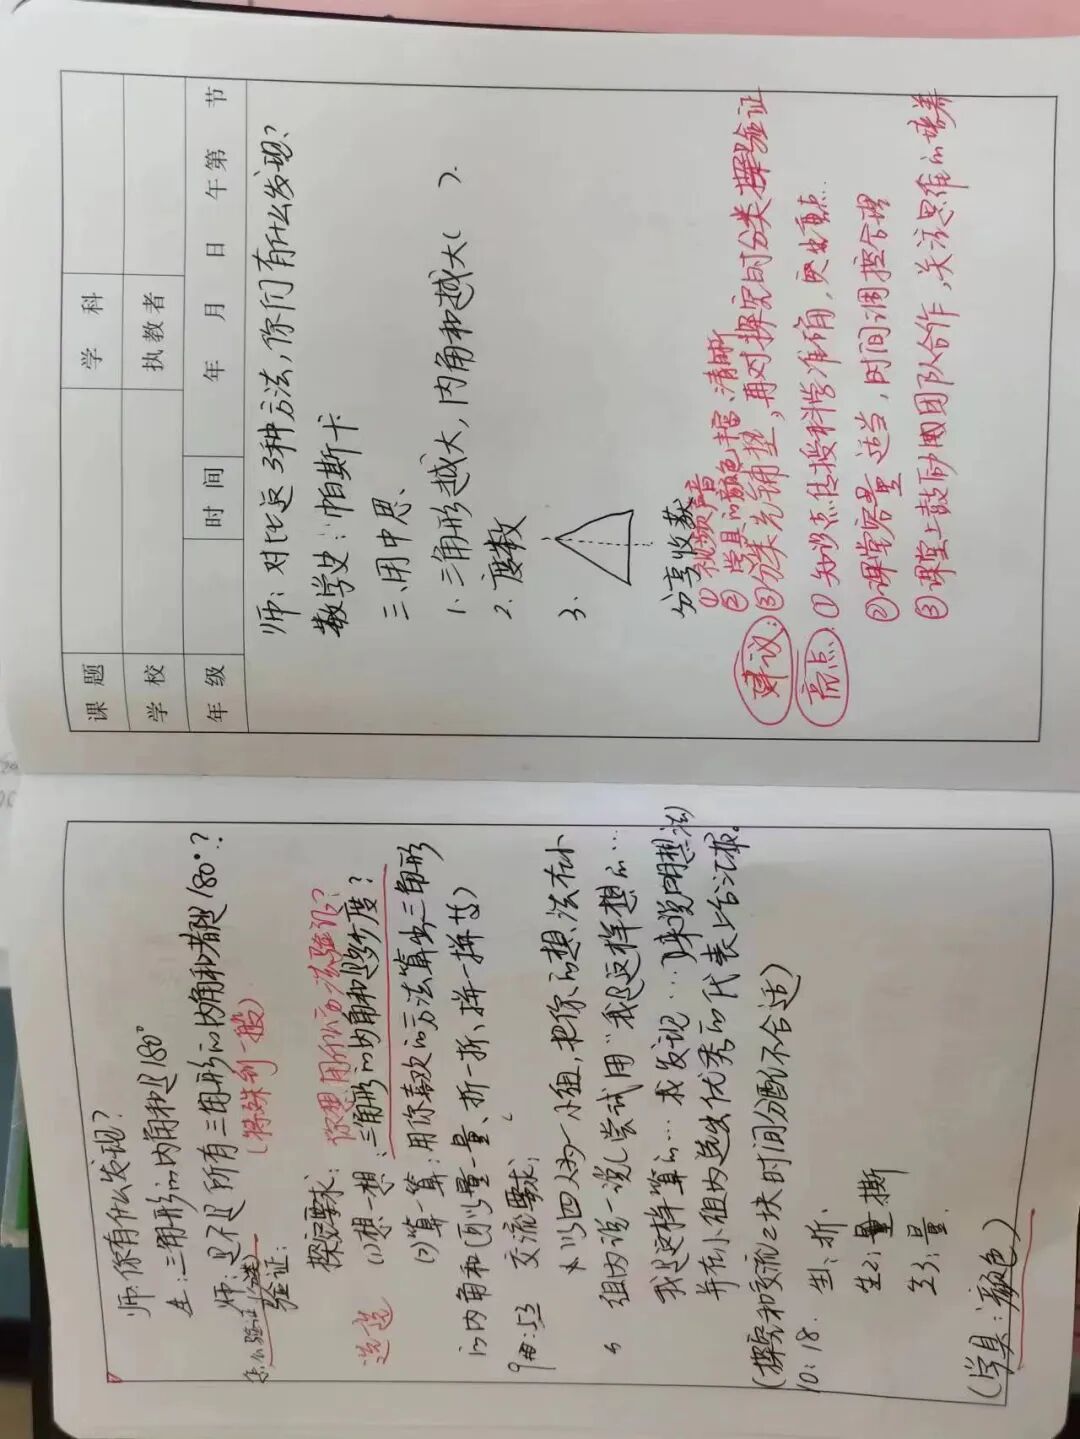 师：你有什么发现？
生：三角形的内角和是180°
师：是不是所有三角形的内角和都是180°？
怎么验证（分类）
（特殊到一般）
验证：
你想用什么方法验证？
探究要求：
选选
(1)想一想：三角形的内角和是多少度？
(2)算一算：用你喜欢的方法算出三角形
的内角和（可以量一量、折一折、拼一拼等）
9:53
交流要求：
以四人为一小组，把你的想法在小
组内说一说（尝试用“我是这样想的…
我是这样算的… 我发现…）来说明想法
并在小组内选出优秀的代表上台汇报。
（探究和交流2块时间分配不合适）
10:18.
生1：折、
生2：撕
生3：量.
（学具：颜色）
课题
学科
学校
执教者
年级
时间
年 月 日 午第 节
师：对比这3种方法，你们有什么发现？
数学史：帕斯卡
三、用中思、
1、三角形越大，内角和越大（ ）.
2、度数
3、
分享收获
①视频声音
②学具的颜色丰富、清晰
建议：③分类先铺垫，再对探究时分类择验证
亮点：①知识点传授科学准确，突出重点…
②课堂容量适当，时间调控合理
③课堂上鼓励团队合作，关注思维的培养